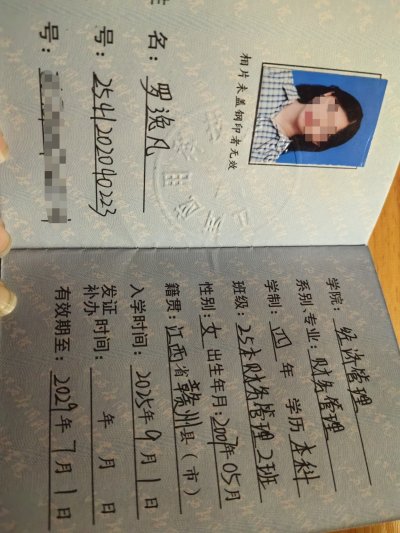 相片未盖钢印者无效
姓名：罗逸凡
号：2541202040223
号：
学院：经济管理
系别、专业：财务管理
学制：四年 学历 本科
班级：25本财务管理2班
性别：女 出生年月：2007年05月
籍贯：江西省赣州县（市）
入学时间：2025年9月1日
发证
补办
时间： 年 月 日
有效期至：2029年7月1日